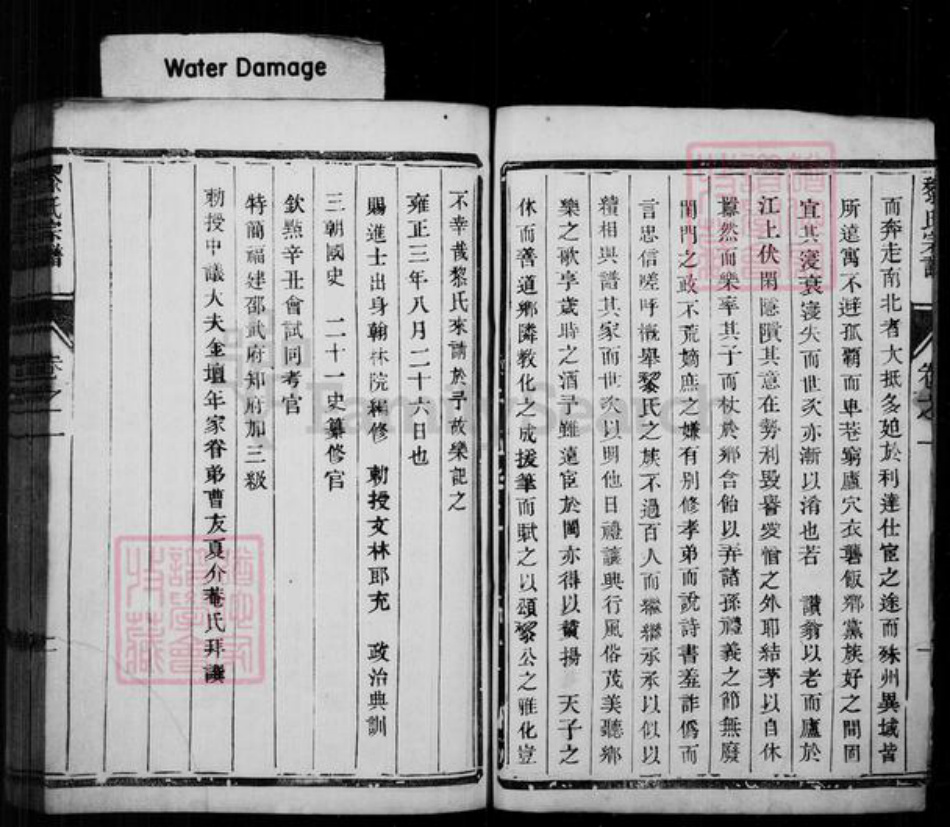 Water Damage
而奔走南北者大抵多廹於利達仕宦之途而殊州異域皆
所遠寓不避孤霸而卑巷窮廬穴衣襲飯鄉黨族好之間固
宜其寖衰寖失而世次亦漸以淆也若 讚翁以老而廬於
江上伏閑隱隤其意在勢利毀譽愛憎之外耶結茅以自休
囂然而樂率其子而杖於鄉含飴以弄諸孫禮義之節無廢
閨門之政不荒嫡庶之嫌有別修孝弟而說詩書羞詐僞而
言忠信嗟呼慨舉黎氏之族不過百人而繼繼承承以似以
續相與譜其家而世次以明他日禮讓興行風俗茂美聽鄉
樂之歌享歲時之酒予雖遠宦於閩亦得以贊揚 天子之
休而善道鄉隣教化之成援筆而賦之以頌黎公之雅化豈
不幸哉黎氏來請於予故樂記之
雍正三年八月二十六日也
賜進士出身翰林院編修 勅授文林郎充 政治典訓
三朝國史 二十一史纂修官
欽點辛丑會試同考官
特簡福建邵武府知府加三級
勅授中議大夫金壇年家眷弟曹友夏介菴氏拜譔
黎氏宗譜 卷之一
FamilySearch